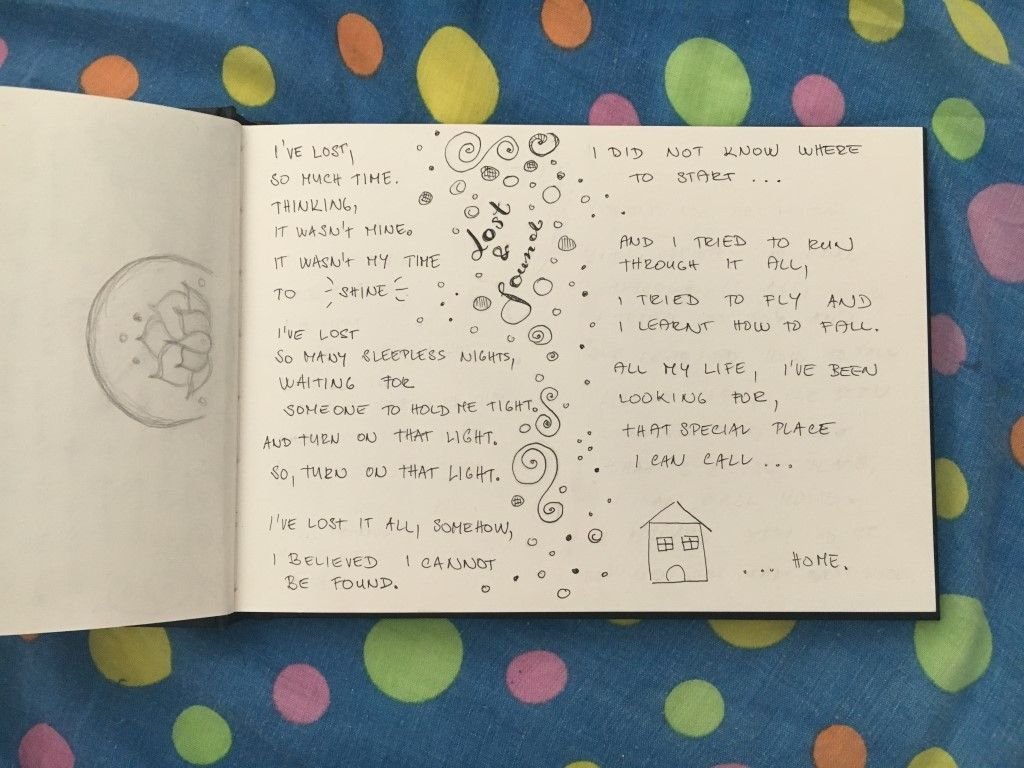 I'VE LOST,
SO MUCH TIME.
THINKING,
IT WASN'T MINE.
IT WASN'T MY TIME
TO SHINE
I'VE LOST
SO MANY SLEEPLESS NIGHTS,
WAITING FOR
SOMEONE TO HOLD ME TIGHT.
AND TURN ON THAT LIGHT.
SO, TURN ON THAT LIGHT.
I'VE LOST IT ALL, SOMEHOW,
I BELIEVED I CANNOT
BE FOUND.
Lost
&
found
I DID NOT KNOW WHERE
TO START ...
AND I TRIED TO RUN
THROUGH IT ALL,
I TRIED TO FLY AND
I LEARNT HOW TO FALL.
ALL MY LIFE, I'VE BEEN
LOOKING FOR,
THAT SPECIAL PLACE
I CAN CALL ...
... HOME.